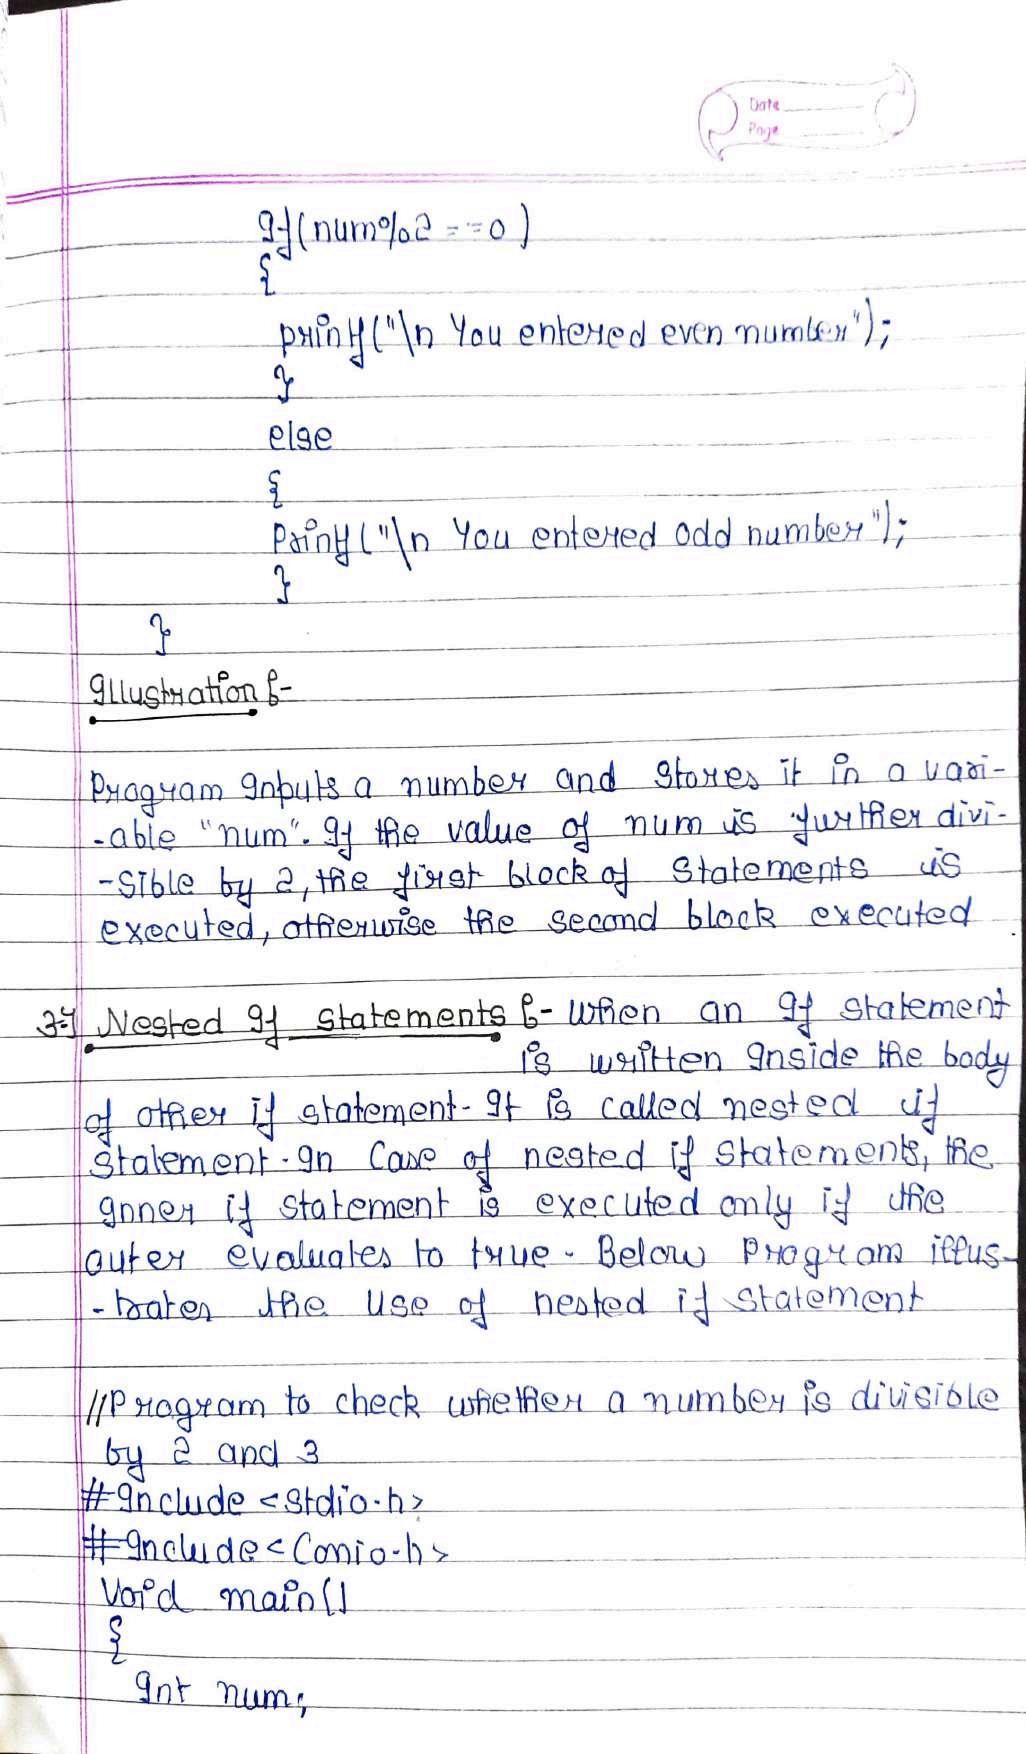 Date
Page
If(num%2 ==0)
{
printf("\n You entered even number");
}
else
{
Printf("\n You entered odd number");
}
}
Illustration :-
Program Inputs a number and stores it in a vari-
-able "num". If the value of num is further divi-
-sible by 2, the first block of statements is
executed, otherwise the second block executed
3:- Nested If statements :- When an If statement
is written Inside the body
of other if statement. It is called nested if
statement. In Case of nested if statements, the
Inner if statement is executed only if the
outer evaluates to true. Below Program illus-
-trates the use of nested if statement
//Program to check whether a number is divisible
by 2 and 3
#Include <stdio.h>
#Include<Conio.h>
Void main()
{
Int num;